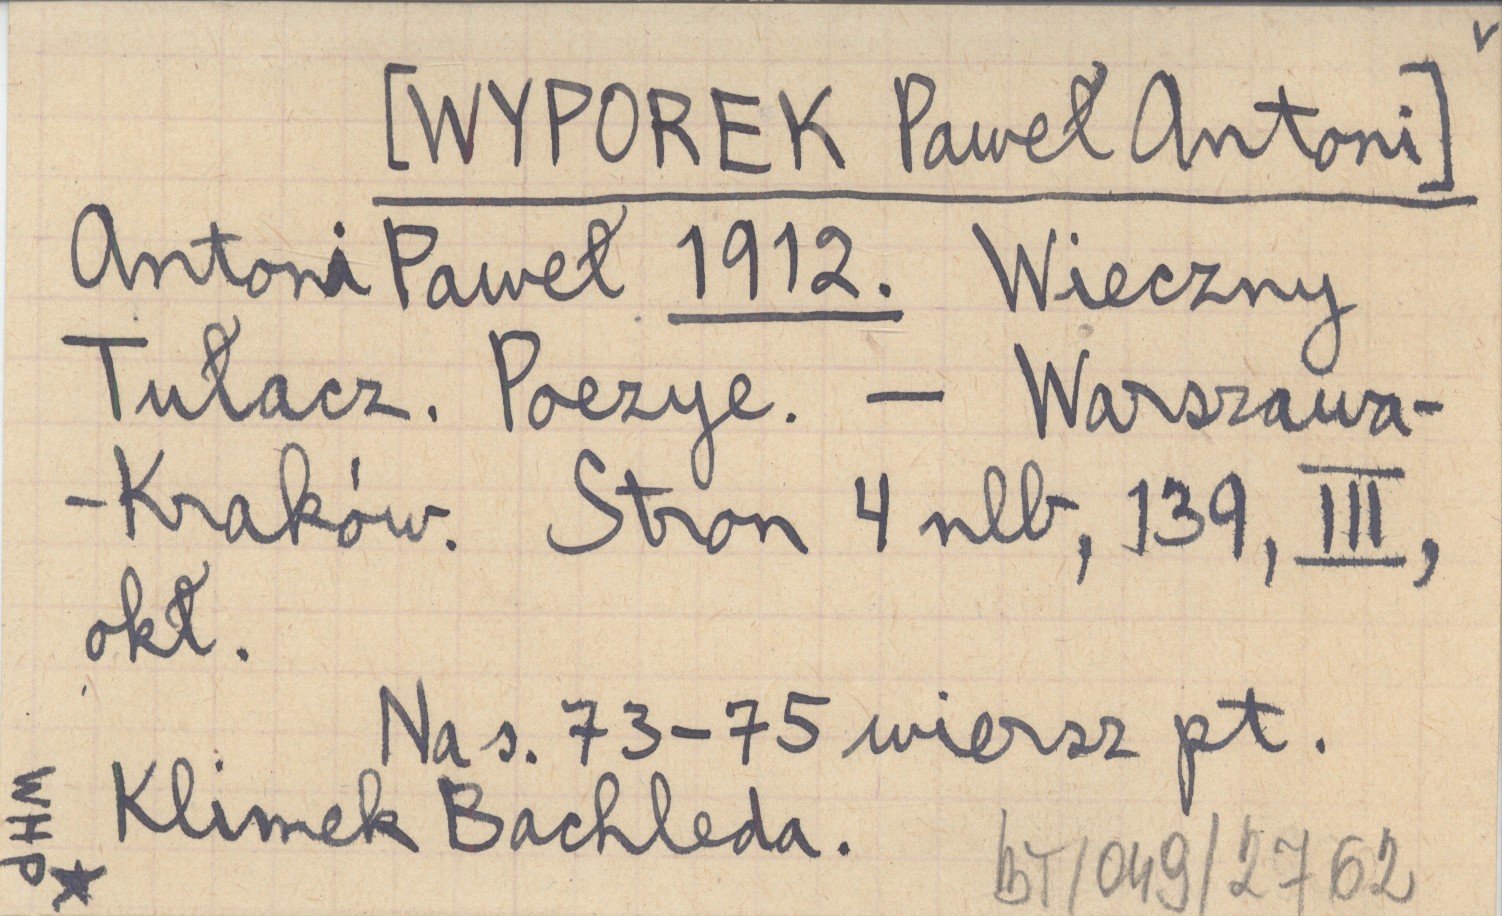 [WYPOREK Paweł Antoni]
Antoni Paweł 1912. Wieczny
Tułacz. Poezye. — Warszawa-
-Kraków. Stron 4 nlb, 139, III,
okł.
Na s. 73-75 wiersz pt.
Klimek Bachleda.
WHP
BT/049/2762